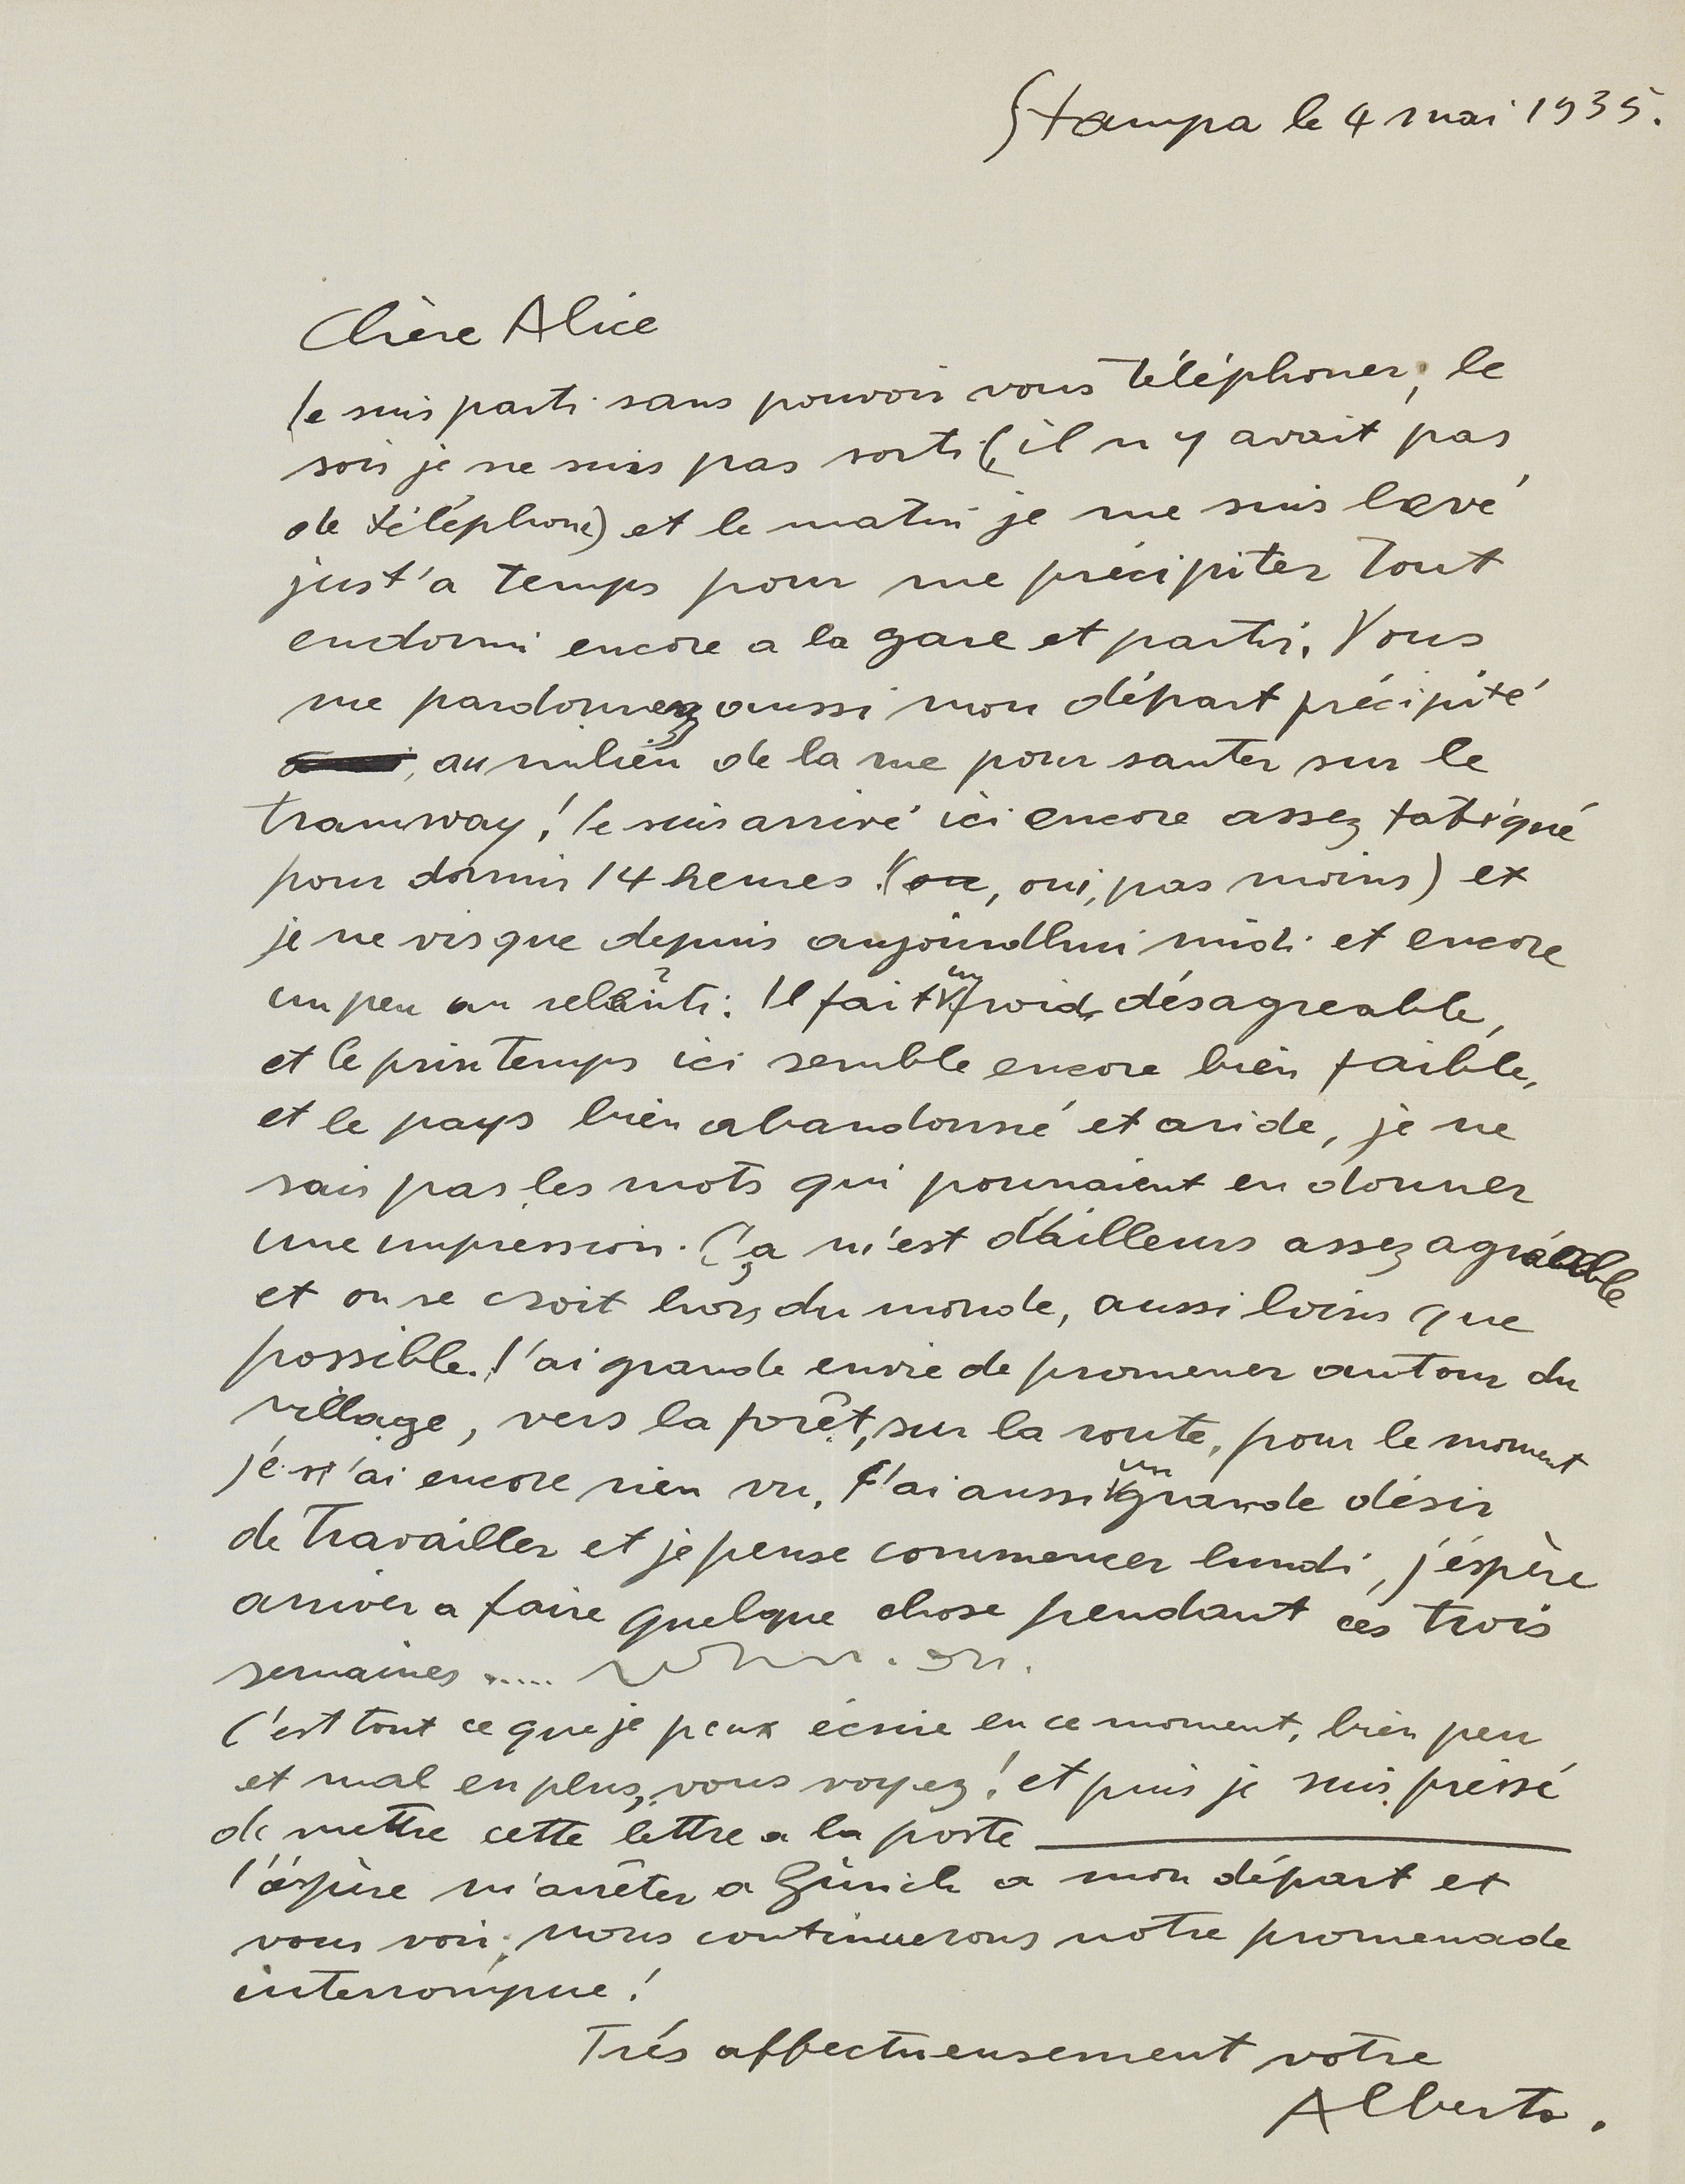 Stampa le 4 mai 1935.
Chère Alice
Je suis parti sans pouvoir vous téléphoner, le
soir je ne suis pas sorti (il n y avait pas
de téléphone) et le matin je me suis levé
just'a temps pour me précipiter tout
endormi encore a la gare et partir. Vous
me pardonnez aussi mon départ précipité
au milieu de la rue pour sauter sur le
tramway! Je suis arrivé ici encore assez fatigué
pour dormir 14 heures! (ou, oui, pas moins) et
je ne vis que depuis aujourdhui midi et encore
un peu au relenti: Il fait un froid désagreable,
et le printemps ici semble encore bien faible,
et le pays bien abandonné et aride, je ne
sais pas les mots qui pourraient en donner
une impression. Ça m'est d'ailleurs assez agréable
et on se croit hors du monde, aussi loins que
possible. J'ai grande envie de promener autour du
village, vers la forêt, sur la route, pour le moment
je n'ai encore rien vu. J'ai aussi un grande désir
de travailler et je pense commencer lundi, j'éspère
arriver a faire quelque chose pendant ces trois
semaines .....
C'est tout ce que je peux écrire en ce moment, bien peu
et mal en plus, vous voyez! et puis je suis pressé
de mettre cette lettre a la poste
J'éspère m'arrêter a Zürich a mon départ et
vous voir, nous continuerons notre promenade
interrompue!
Trés affectueusement votre
Alberto.